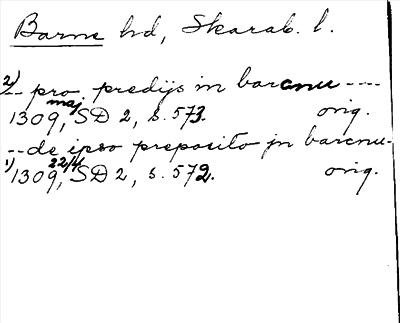 Barne hd, Skarab. l.
2) -- pro predijs in barcnu ----
1309, maj SD 2, s. 573. orig.
-- de ipso preposito jn barcnu-
1) 1309, 22/4 SD 2, s. 572. orig.